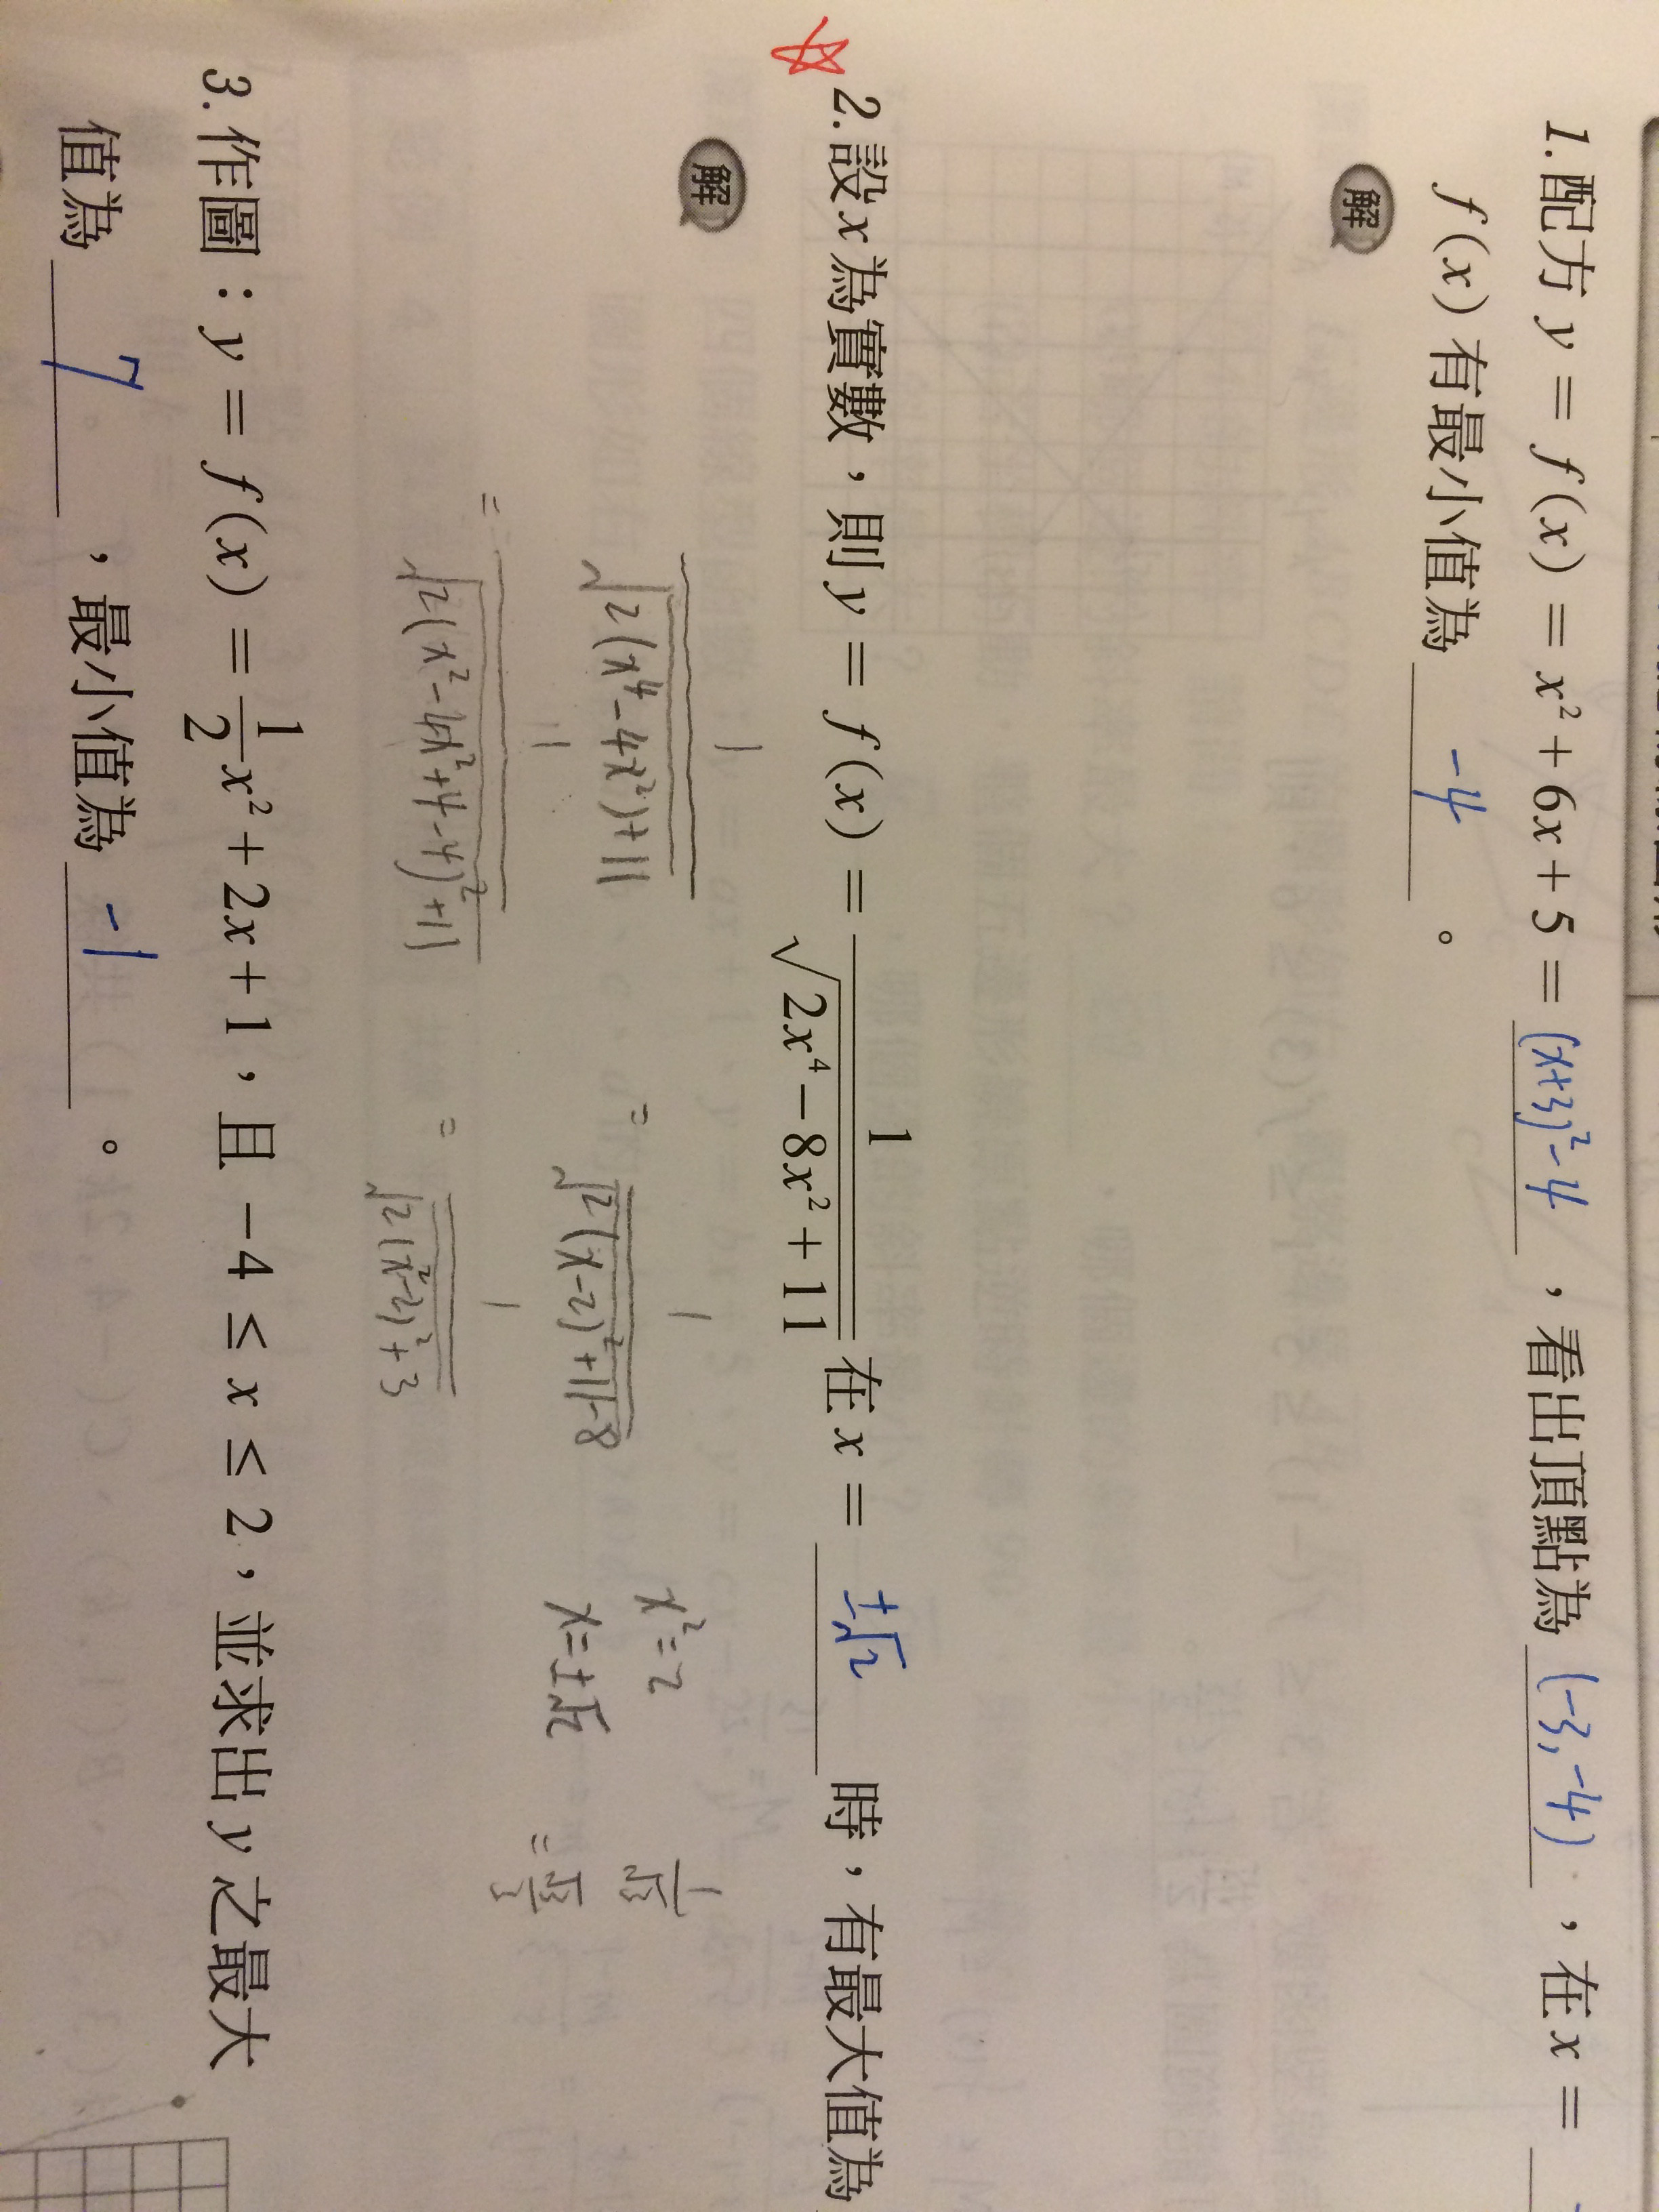 1.配方 y = f(x) = x² + 6x + 5 = (x+3)²-4 ，看出頂點為 (-3,-4) ，在 x =
f(x) 有最小值為 -4 。
解
2.設 x 為實數，則 y = f(x) = 1/√(2x⁴ − 8x² + 11) 在 x = ±√2 時，有最大值為
解
1/√(2(x⁴-4x²)+11) = 1/√(2(x-2)²+11-8)
x²=2
x=±√2
1/√3
= √3/3
= 1/√(2(x²-4x²+4-4)²+11) = 1/√(2(x²-2)²+3)
3.作圖：y = f(x) = 1/2 x² + 2x + 1，且 −4 ≤ x ≤ 2，並求出 y 之最大
值為 7 ，最小值為 -1 。